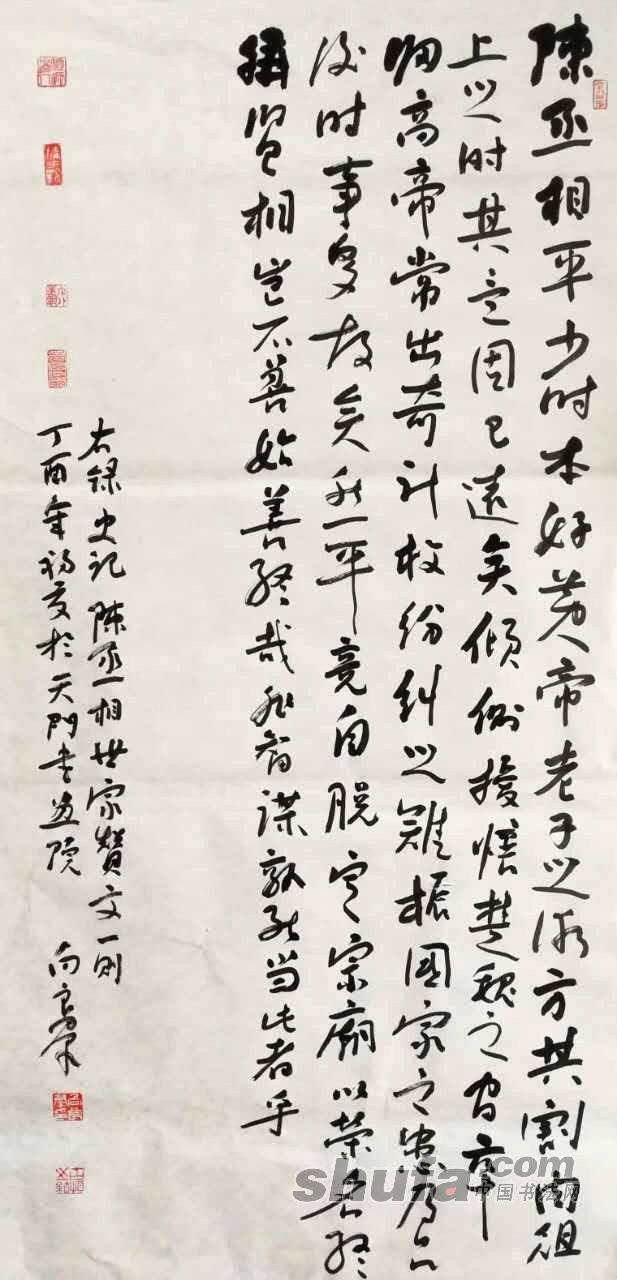 陳丞相平少时本好黄帝老子之術方其割肉俎
上之时其意固已遠矣傾側擾攘楚魏之间卒
归高帝常出奇计救纷纠之難振國家之患及吕
后时事多故矣然平竟自脱定宗廟以荣名终
稱贤相岂不善始善终哉非智谋孰能当此者乎
右録史记陳丞相世家贊文一則
丁酉年初夏於天門书画院 向
shufa.com
中国书法网